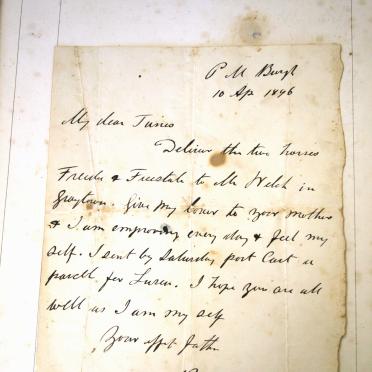 P M Burgh
10 Apr 1896
My dear
Deliver the two horses
& Freestate to Mr Welch in
Greytown. Give my love to your mother
& I am emproving every day & feel my
self. I sent by Saturday post Cart a
parcell for I hope you are all
well as I am my self
Your affet father